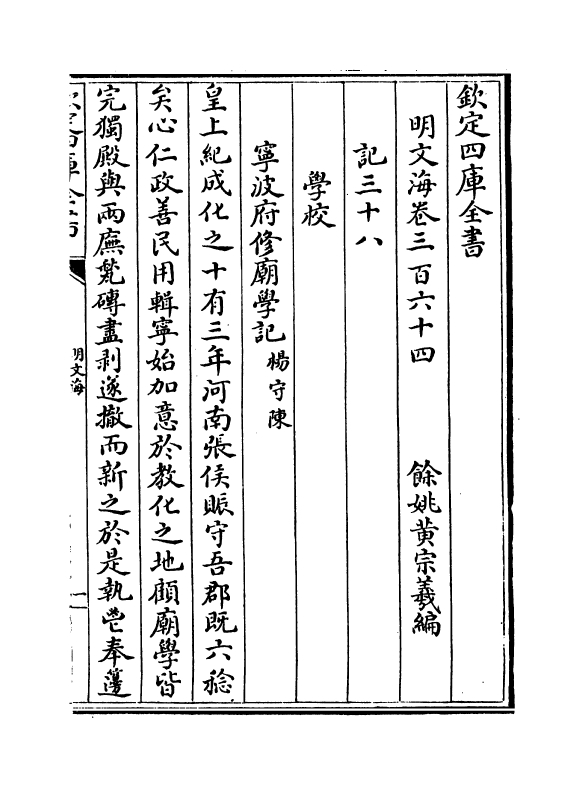 欽定四庫全書
明文海卷三百六十四
餘姚黄宗羲編
記三十八
學校
寧波府修廟學記楊守陳
皇上紀成化之十有三年河南張侯賑守吾郡既六稔
矣心仁政善民用輯寧始加意於教化之地顧廟學皆
完獨殿與兩廡甃磚盡剥遂撤而新之於是執罍奉籩
明文海